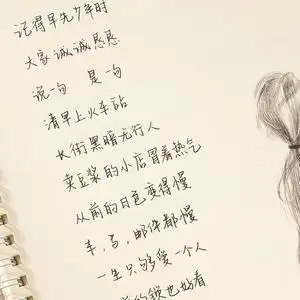 记得早先少年时
大家诚诚恳恳
说一句 是一句
清早上火车站
长街黑暗无行人
卖豆浆的小店冒着热气
从前的日色变得慢
车，马，邮件都慢
一生只够爱一个人
的锁也好看